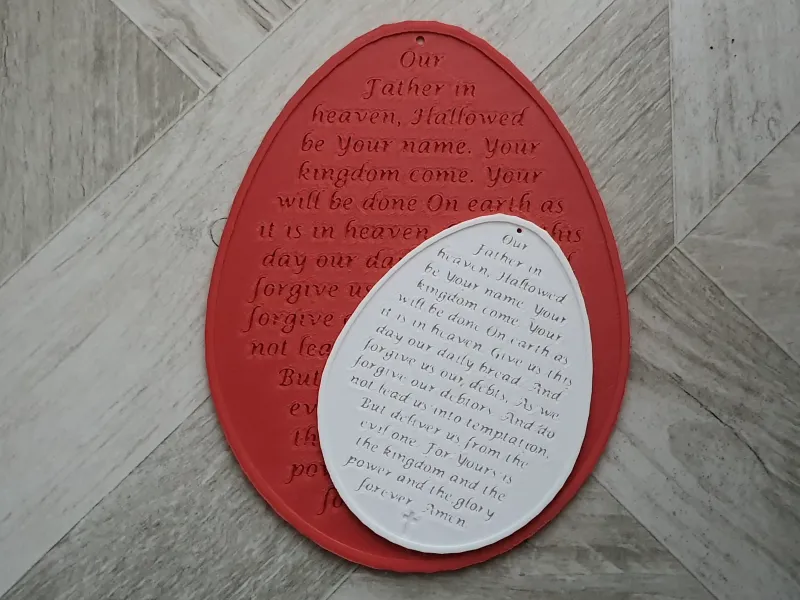 Our
Father in
heaven, Hallowed
be Your name. Your
kingdom come. Your
will be done On earth as
it is in heaven this
day our da
forgive us
forgive
not lea
But
ev
th
po
fo
Our
Father in
heaven, Hallowed
be Your name. Your
kingdom come. Your
will be done On earth as
it is in heaven. Give us this
day our daily bread. And
forgive us our debts, As we
forgive our debtors. And do
not lead us into temptation,
But deliver us from the
evil one. For Yours is
the kingdom and the
power and the glory
forever. Amen